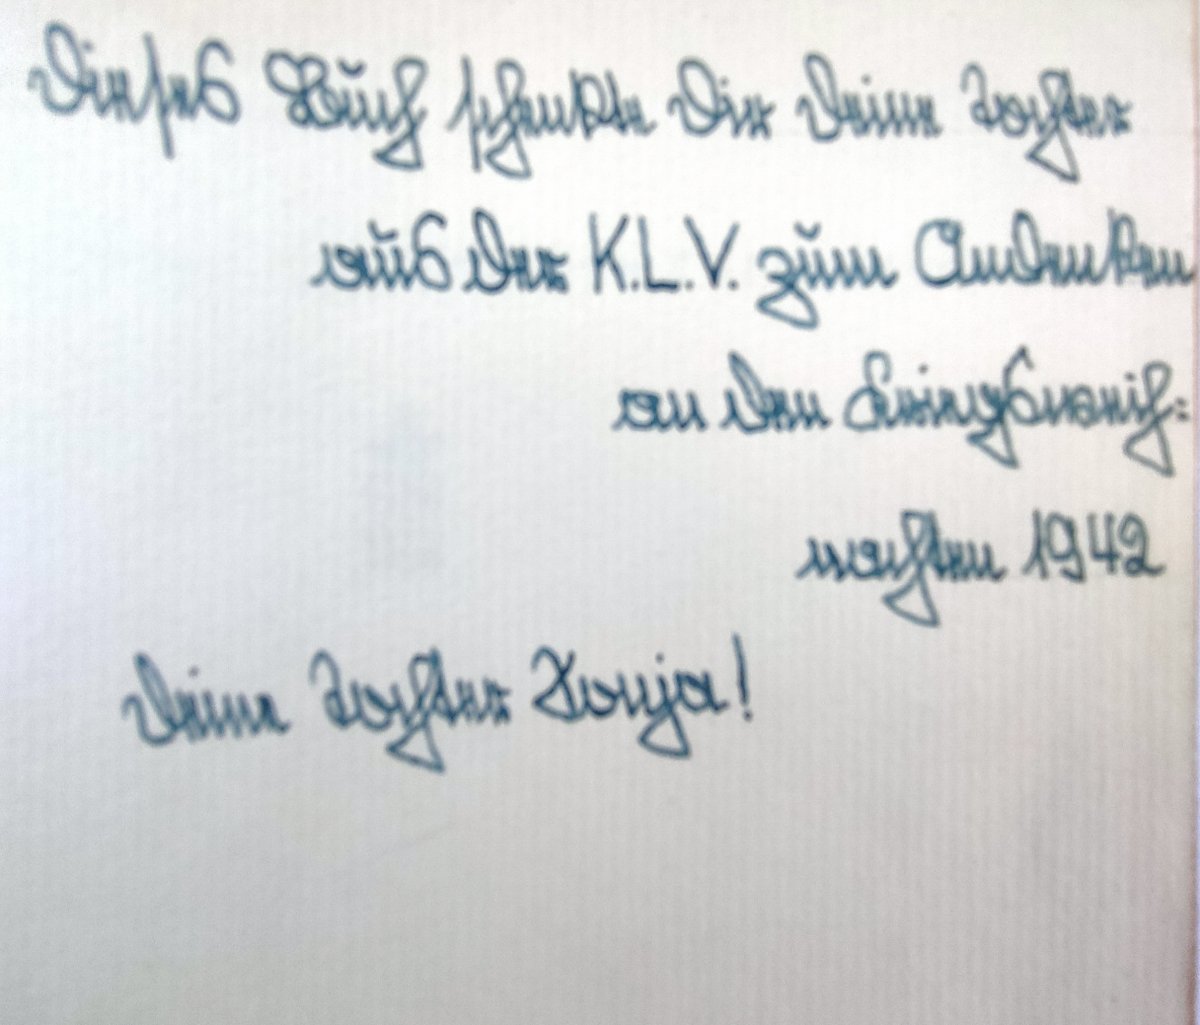 Dieses Buch schenkte Dir Deine Tochter
aus der K.L.V. zum Andenken
an den Kriegsweih=
nachten 1942
Deine Tochter Sonja!